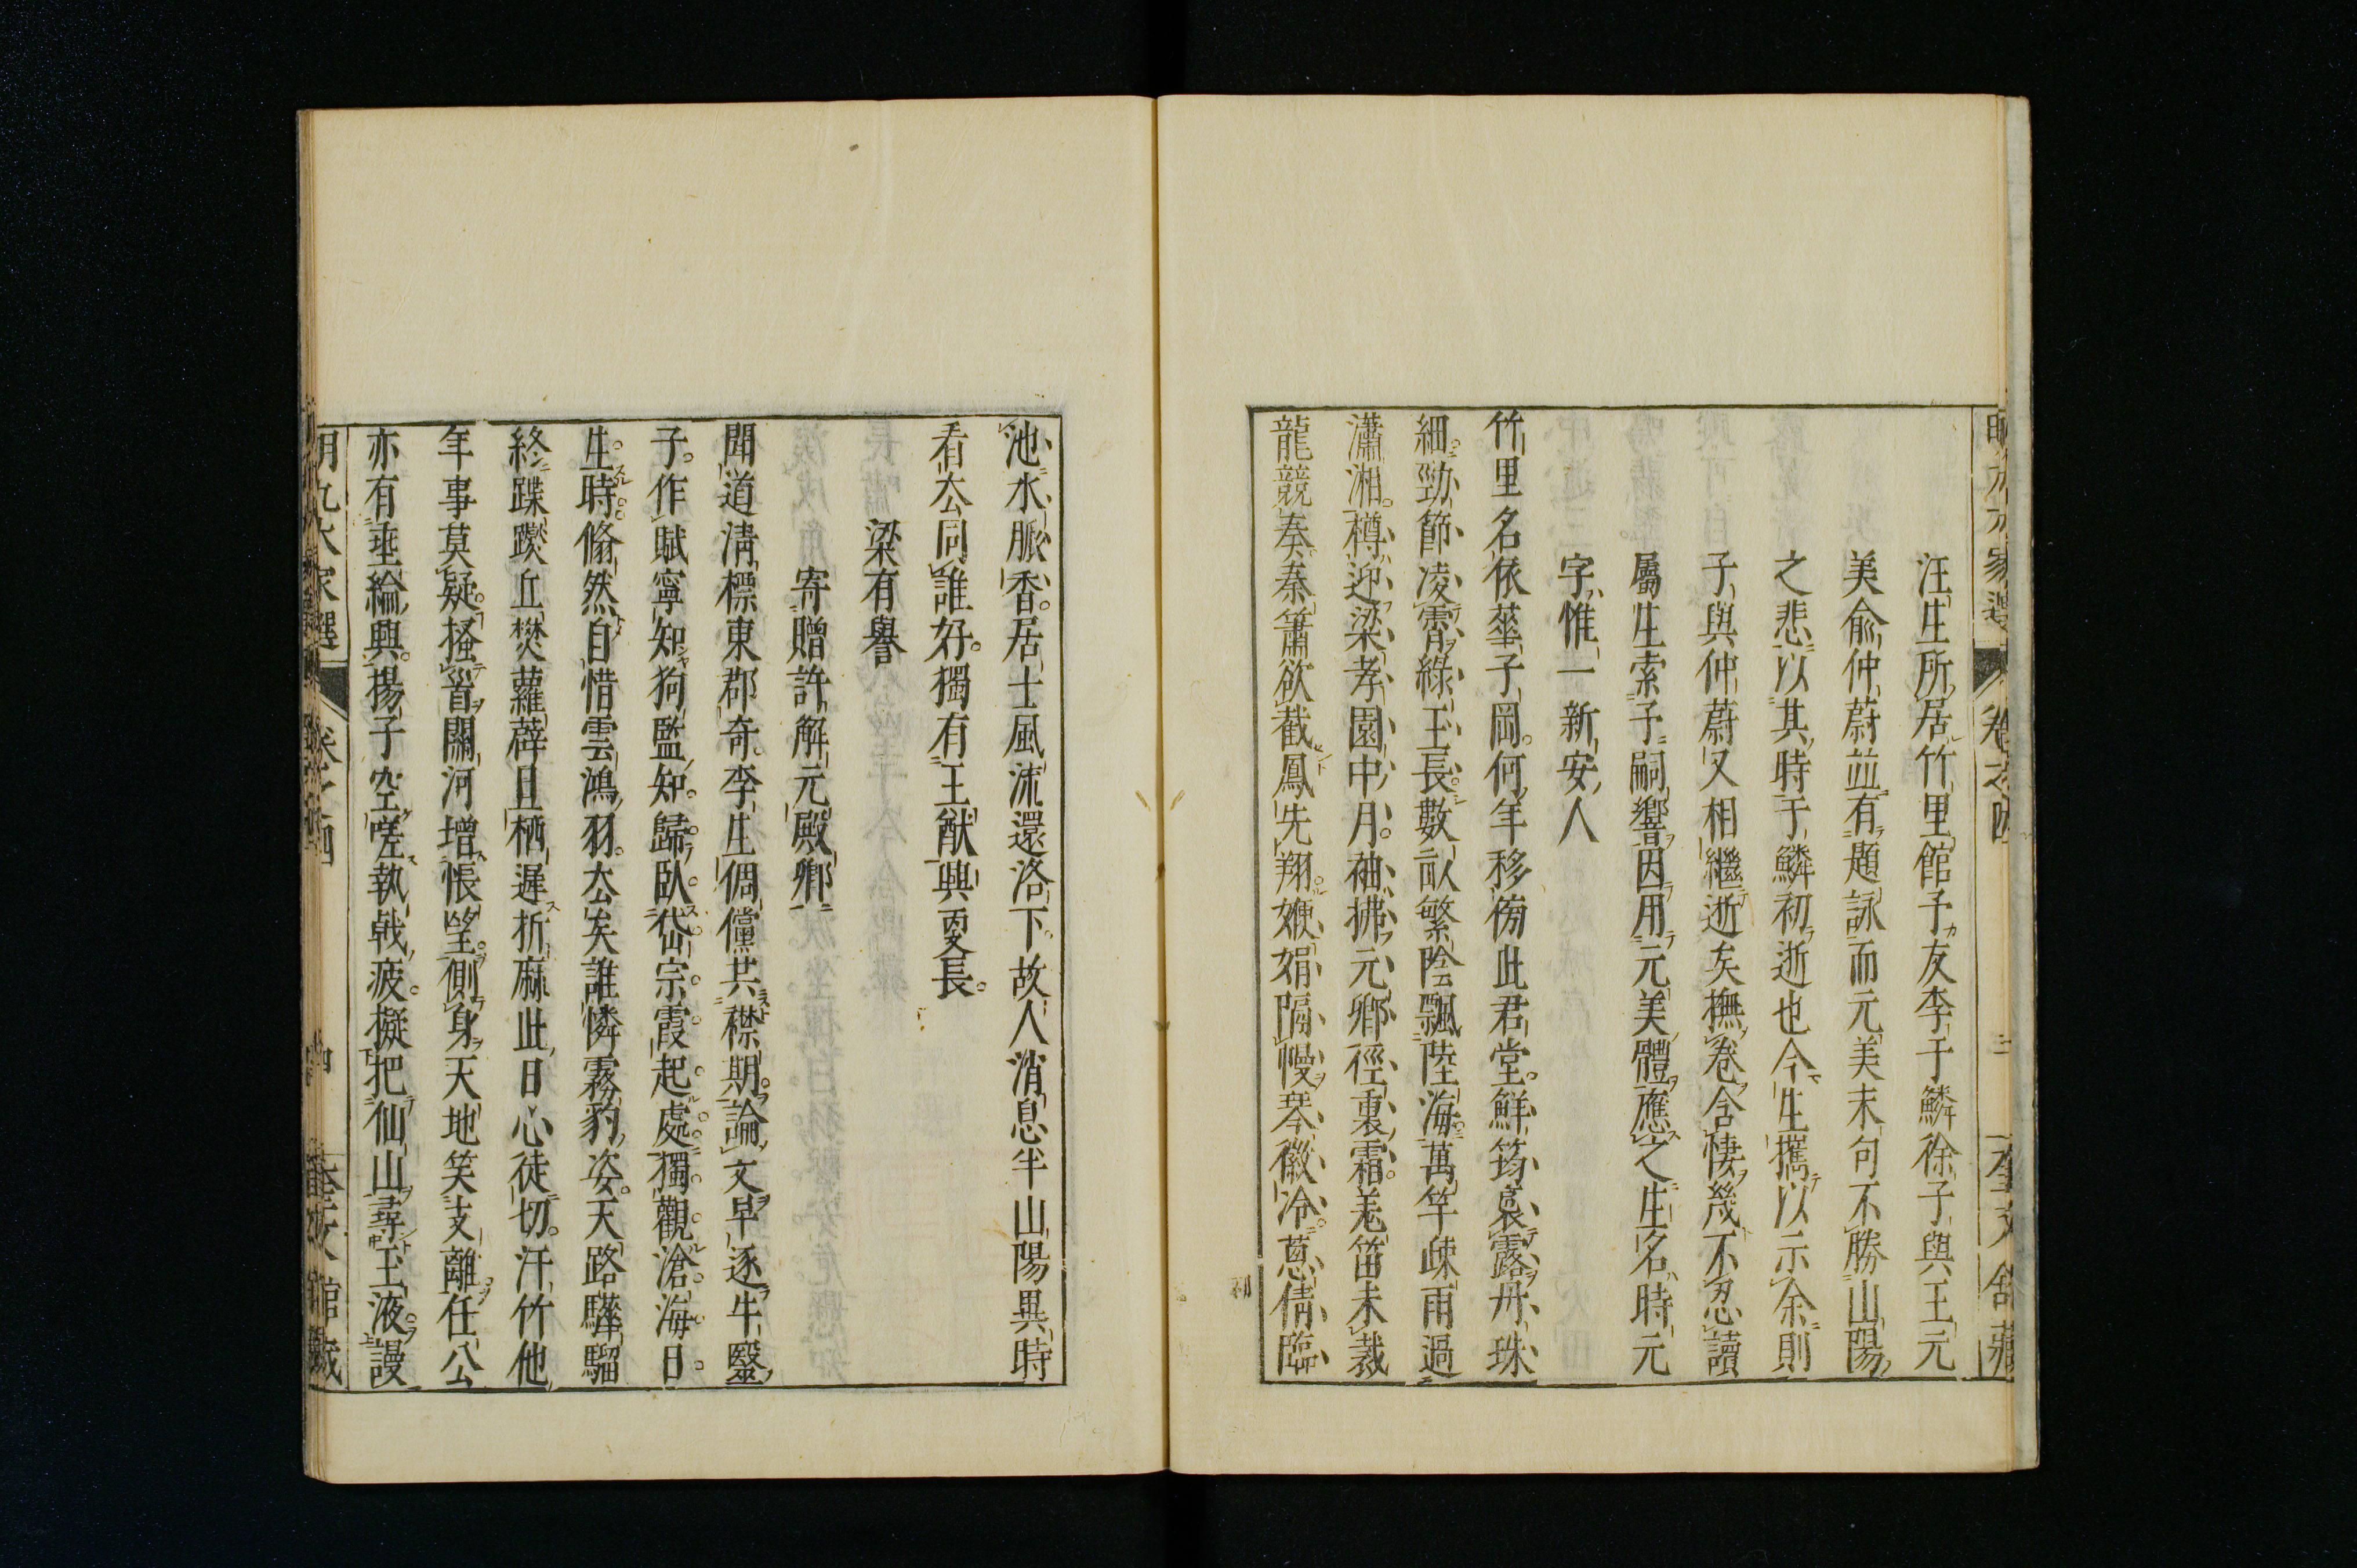 汪生所居竹里館子友李于鱗徐子與王元
美俞仲蔚並有題詠而元美末句不勝山陽
之悲以其時于鱗初逝也今生攜以示余則
子與仲蔚又相繼逝矣撫卷含悽幾不忍讀
屬生索予嗣響因用元美體應之生名時元
字惟一新安人
竹里名依華子岡何年移傍此君堂鮮筠裛露丹珠
細勁節凌霄綠玉長數畝繁陰飄陸海萬竿疎雨過
瀟湘樽迎梁孝園中月袖拂元卿徑裏霜羌笛未裁
龍競奏秦簫欲截鳳先翔娉娟隔幔琴徽冷蔥倩臨
池水脈香居士風流還洛下故人消息半山陽異時
看公同誰好獨有王猷興更長
梁有譽
寄贈許解元殿卿
聞道清標東郡奇李生倜儻共襟期論文早逐牛毉
子作賦寧知狗監知歸臥岱宗霞起處獨觀滄海日
生時翛然自惜雲鴻羽公矣誰憐霧豹姿天路驊騮
終蹀躞丘樊蘿薜且栖遲折麻此日心徒切汗竹他
年事莫疑搔首關河增悵望側身天地笑支離任公
亦有垂綸興揚子空嗟執戟疲擬把仙山尋玉液謾
明九大家選 卷之四 四 奎文館藏